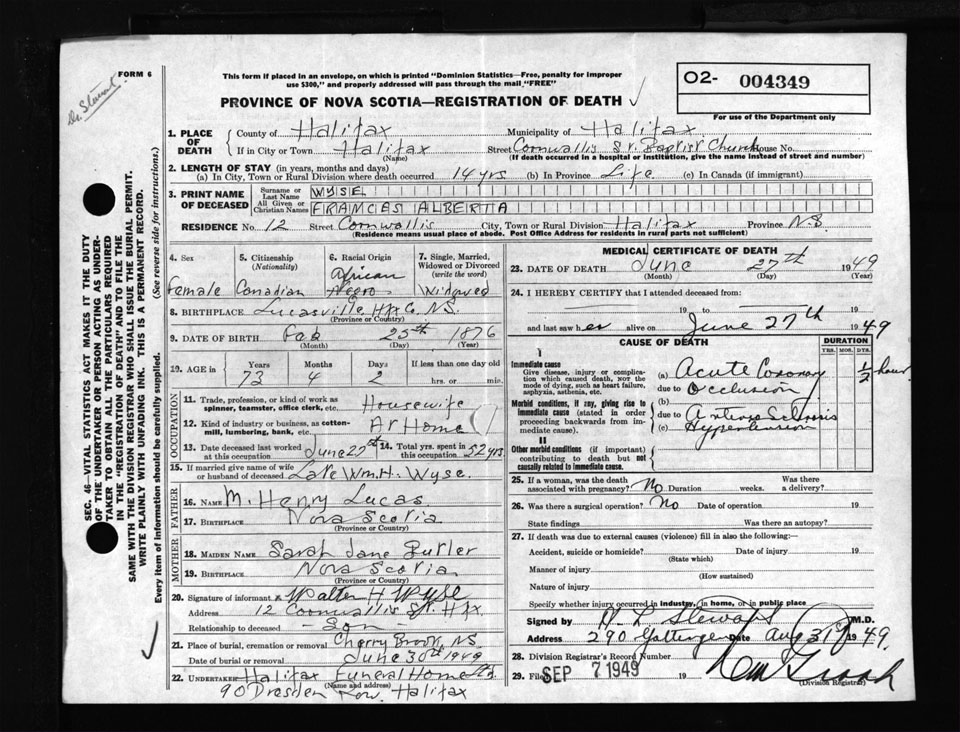 FORM 6
Dr. Stewart
This form if placed in an envelope, on which is printed "Dominion Statistics—Free, penalty for improper
use $300," and properly addressed will pass through the mail "FREE"
O2- 004349
PROVINCE OF NOVA SCOTIA—REGISTRATION OF DEATH
For use of the Department only
SEC. 46—VITAL STATISTICS ACT MAKES IT THE DUTY
OF THE UNDERTAKER OR PERSON ACTING AS UNDER-
TAKER TO OBTAIN ALL THE PARTICULARS REQUIRED
IN THE "REGISTRATION OF DEATH" AND TO FILE THE
SAME WITH THE DIVISION REGISTRAR WHO SHALL ISSUE THE BURIAL PERMIT.
WRITE PLAINLY WITH UNFADING INK. THIS IS A PERMANENT RECORD.
Every item of information should be carefully supplied. (See reverse side for instructions.)
1. PLACE OF DEATH
County of Halifax Municipality of Halifax
If in City or Town Halifax Street Cornwallis St. Baptist Church House No.
(Name) (If death occurred in a hospital or institution, give the name instead of street and number)
2. LENGTH OF STAY (in years, months and days)
(a) In City, Town or Rural Division where death occurred 14 yrs (b) In Province Life (c) In Canada (if immigrant)
3. PRINT NAME OF DECEASED
Surname or Last Name WYSE
All Given or Christian Names FRANCES ALBERTA
RESIDENCE No. 12 Street Cornwallis City, Town or Rural Division Halifax Province N.S.
(Residence means usual place of abode. Post Office Address for residents in rural parts not sufficient)
4. Sex 5. Citizenship (Nationality) 6. Racial Origin 7. Single, Married, Widowed or Divorced (write the word)
Female Canadian African Negro Widowed
8. BIRTHPLACE Lucasville Hfx Co. N.S.
(Province or Country)
9. DATE OF BIRTH Feb 25th 1876
(Month) (Day) (Year)
10. AGE in Years Months Days If less than one day old
73 4 2 hrs. or min.
OCCUPATION
11. Trade, profession, or kind of work as spinner, teamster, office clerk, etc. Housewife
12. Kind of industry or business, as cotton-mill, lumbering, bank, etc. At Home
13. Date deceased last worked at this occupation June 27th 14. Total yrs. spent in this occupation 52 yrs
15. If married give name of wife or husband of deceased Late Wm. H. Wyse.
FATHER
16. NAME M. Henry Lucas
17. BIRTHPLACE Nova Scotia
(Province or Country)
MOTHER
18. MAIDEN NAME Sarah Jane Butler
19. BIRTHPLACE Nova Scotia
(Province or Country)
20. Signature of informant Walter H Wyse
Address 12 Cornwallis St. Hfx
Relationship to deceased - Son -
21. Place of burial, cremation or removal Cherry Brook, N.S.
Date of burial or removal June 30th 1949
22. UNDERTAKER Halifax Funeral Home
(Name and address)
90 Dresden Row. Halifax
MEDICAL CERTIFICATE OF DEATH
23. DATE OF DEATH June 27th 1949
(Month) (Day) (Year)
24. I HEREBY CERTIFY that I attended deceased from
19 to 19
and last saw her alive on June 27th 1949
CAUSE OF DEATH DURATION
YRS. MOS. DYS.
I
Immediate cause
Give disease, injury or complication which caused death, not the mode of dying, such as heart failure, asphyxia, asthenia, etc.
(a) Acute Coronary 1/2 hour
due to Occlusion
Morbid conditions, if any, giving rise to immediate cause (stated in order proceeding backwards from immediate).
(b)
due to Arterio Sclerosis
(c) Hypertension
II
Other morbid conditions (if important) contributing to death but not causally related to immediate cause.
25. If a woman, was the death associated with pregnancy? No Duration weeks. Was there a delivery?
26. Was there a surgical operation? No Date of operation 19
State findings Was there an autopsy?
27. If death was due to external causes (violence) fill in also the following:
Accident, suicide or homicide? Date of injury 19
(State which)
Manner of injury
(How sustained)
Nature of injury
Specify whether injury occurred in industry, in home, or in public place
Signed by Stewart M.D.
Address 290 Gottingen Date Aug 31 1949.
28. Division Registrar's Record Number
29. Filed SEP 7 1949 19
(Division Registrar)